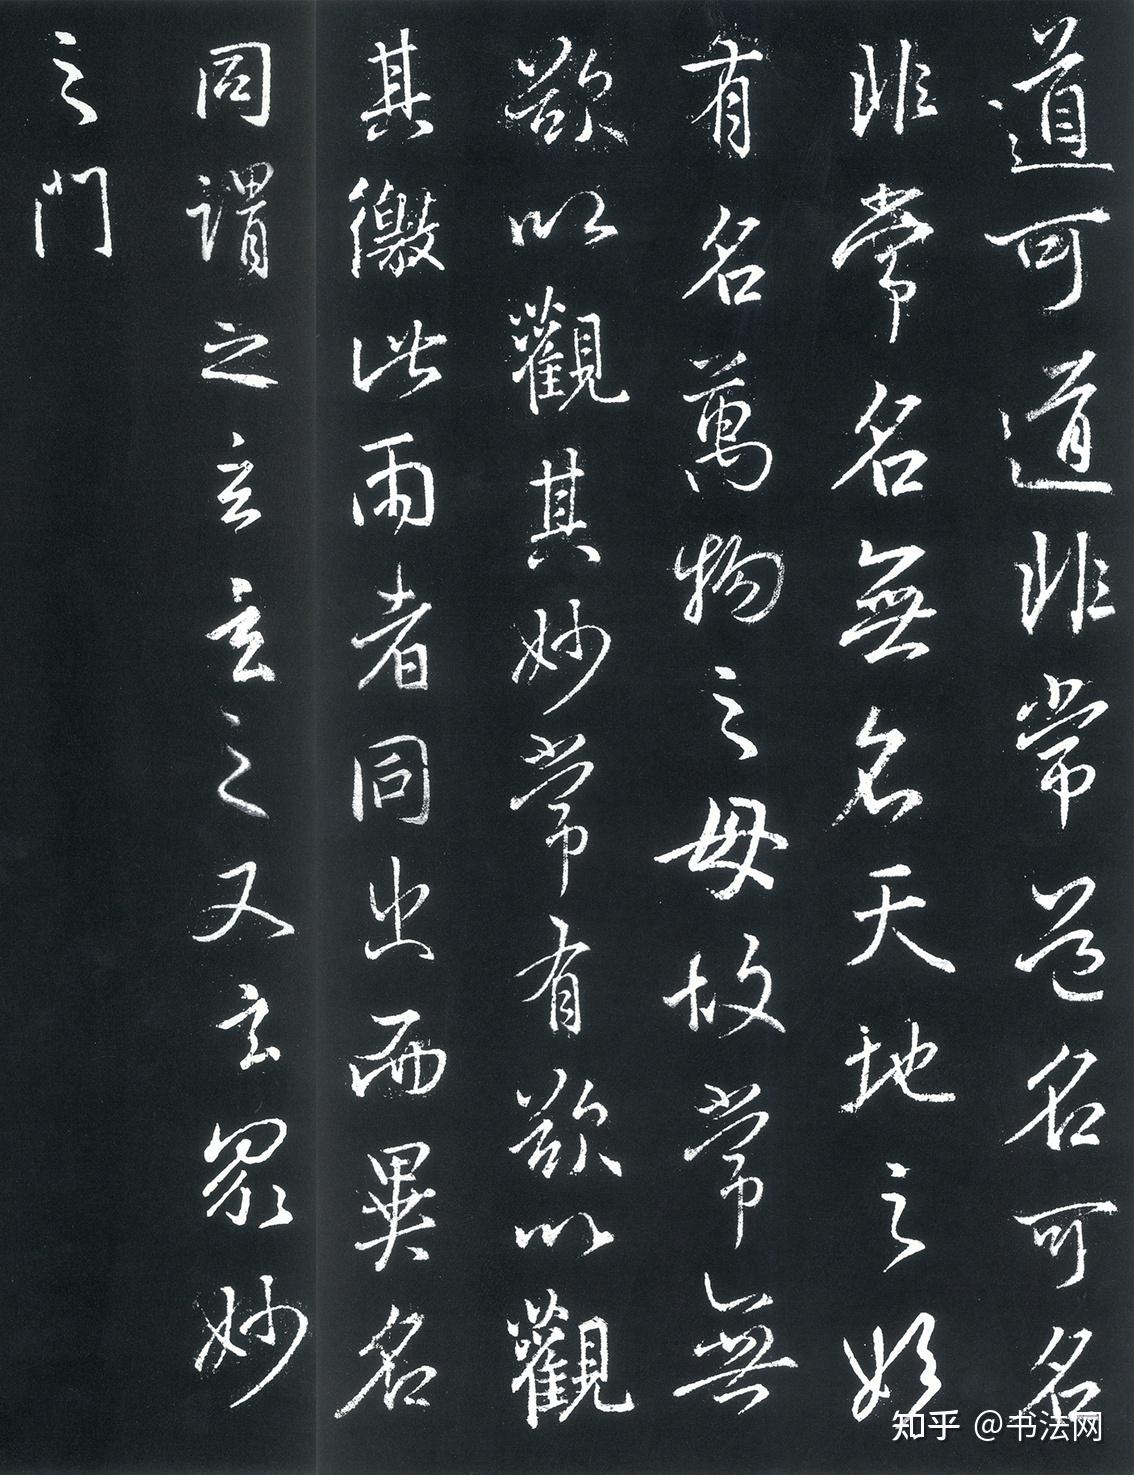 道可道非常道名可名
非常名無名天地之始
有名萬物之母故常無
欲以觀其妙常有欲以觀
其徼此兩者同出而異名
同謂之玄玄之又玄衆妙
之門
知乎 @书法网